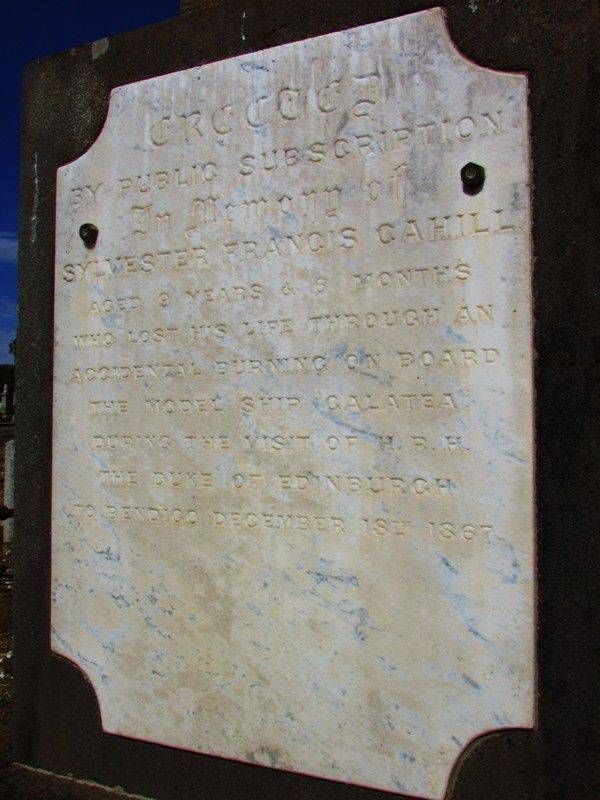 ERECTED
BY PUBLIC SUBSCRIPTION
In Memory of
SYLVESTER FRANCIS CAHILL
AGED 9 YEARS & 8 MONTHS
WHO LOST HIS LIFE THROUGH AN
ACCIDENTAL BURNING ON BOARD
THE MODEL SHIP "GALATEA"
DURING THE VISIT OF H.R.H.
THE DUKE OF EDINBURGH
TO BENDIGO DECEMBER 18TH 1867.